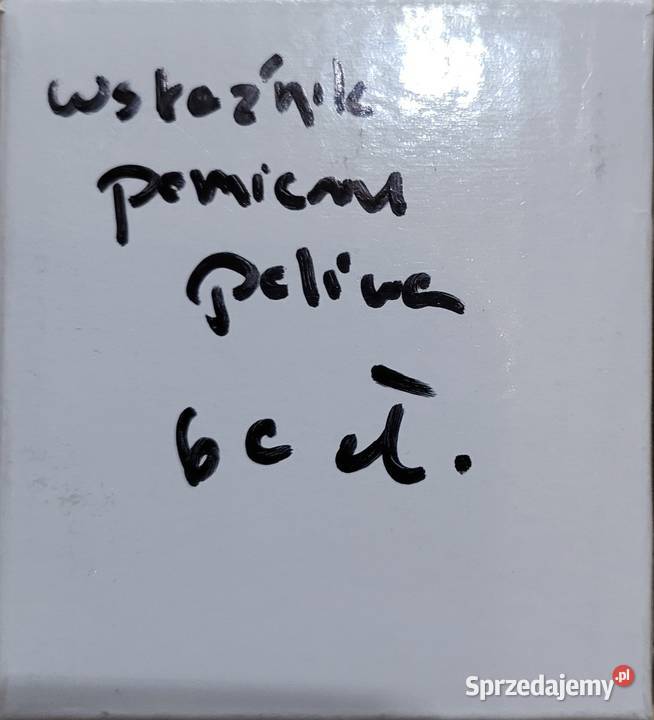 wskaźnik
pomiaru
paliwa
60 zł.
Sprzedajemy.pl